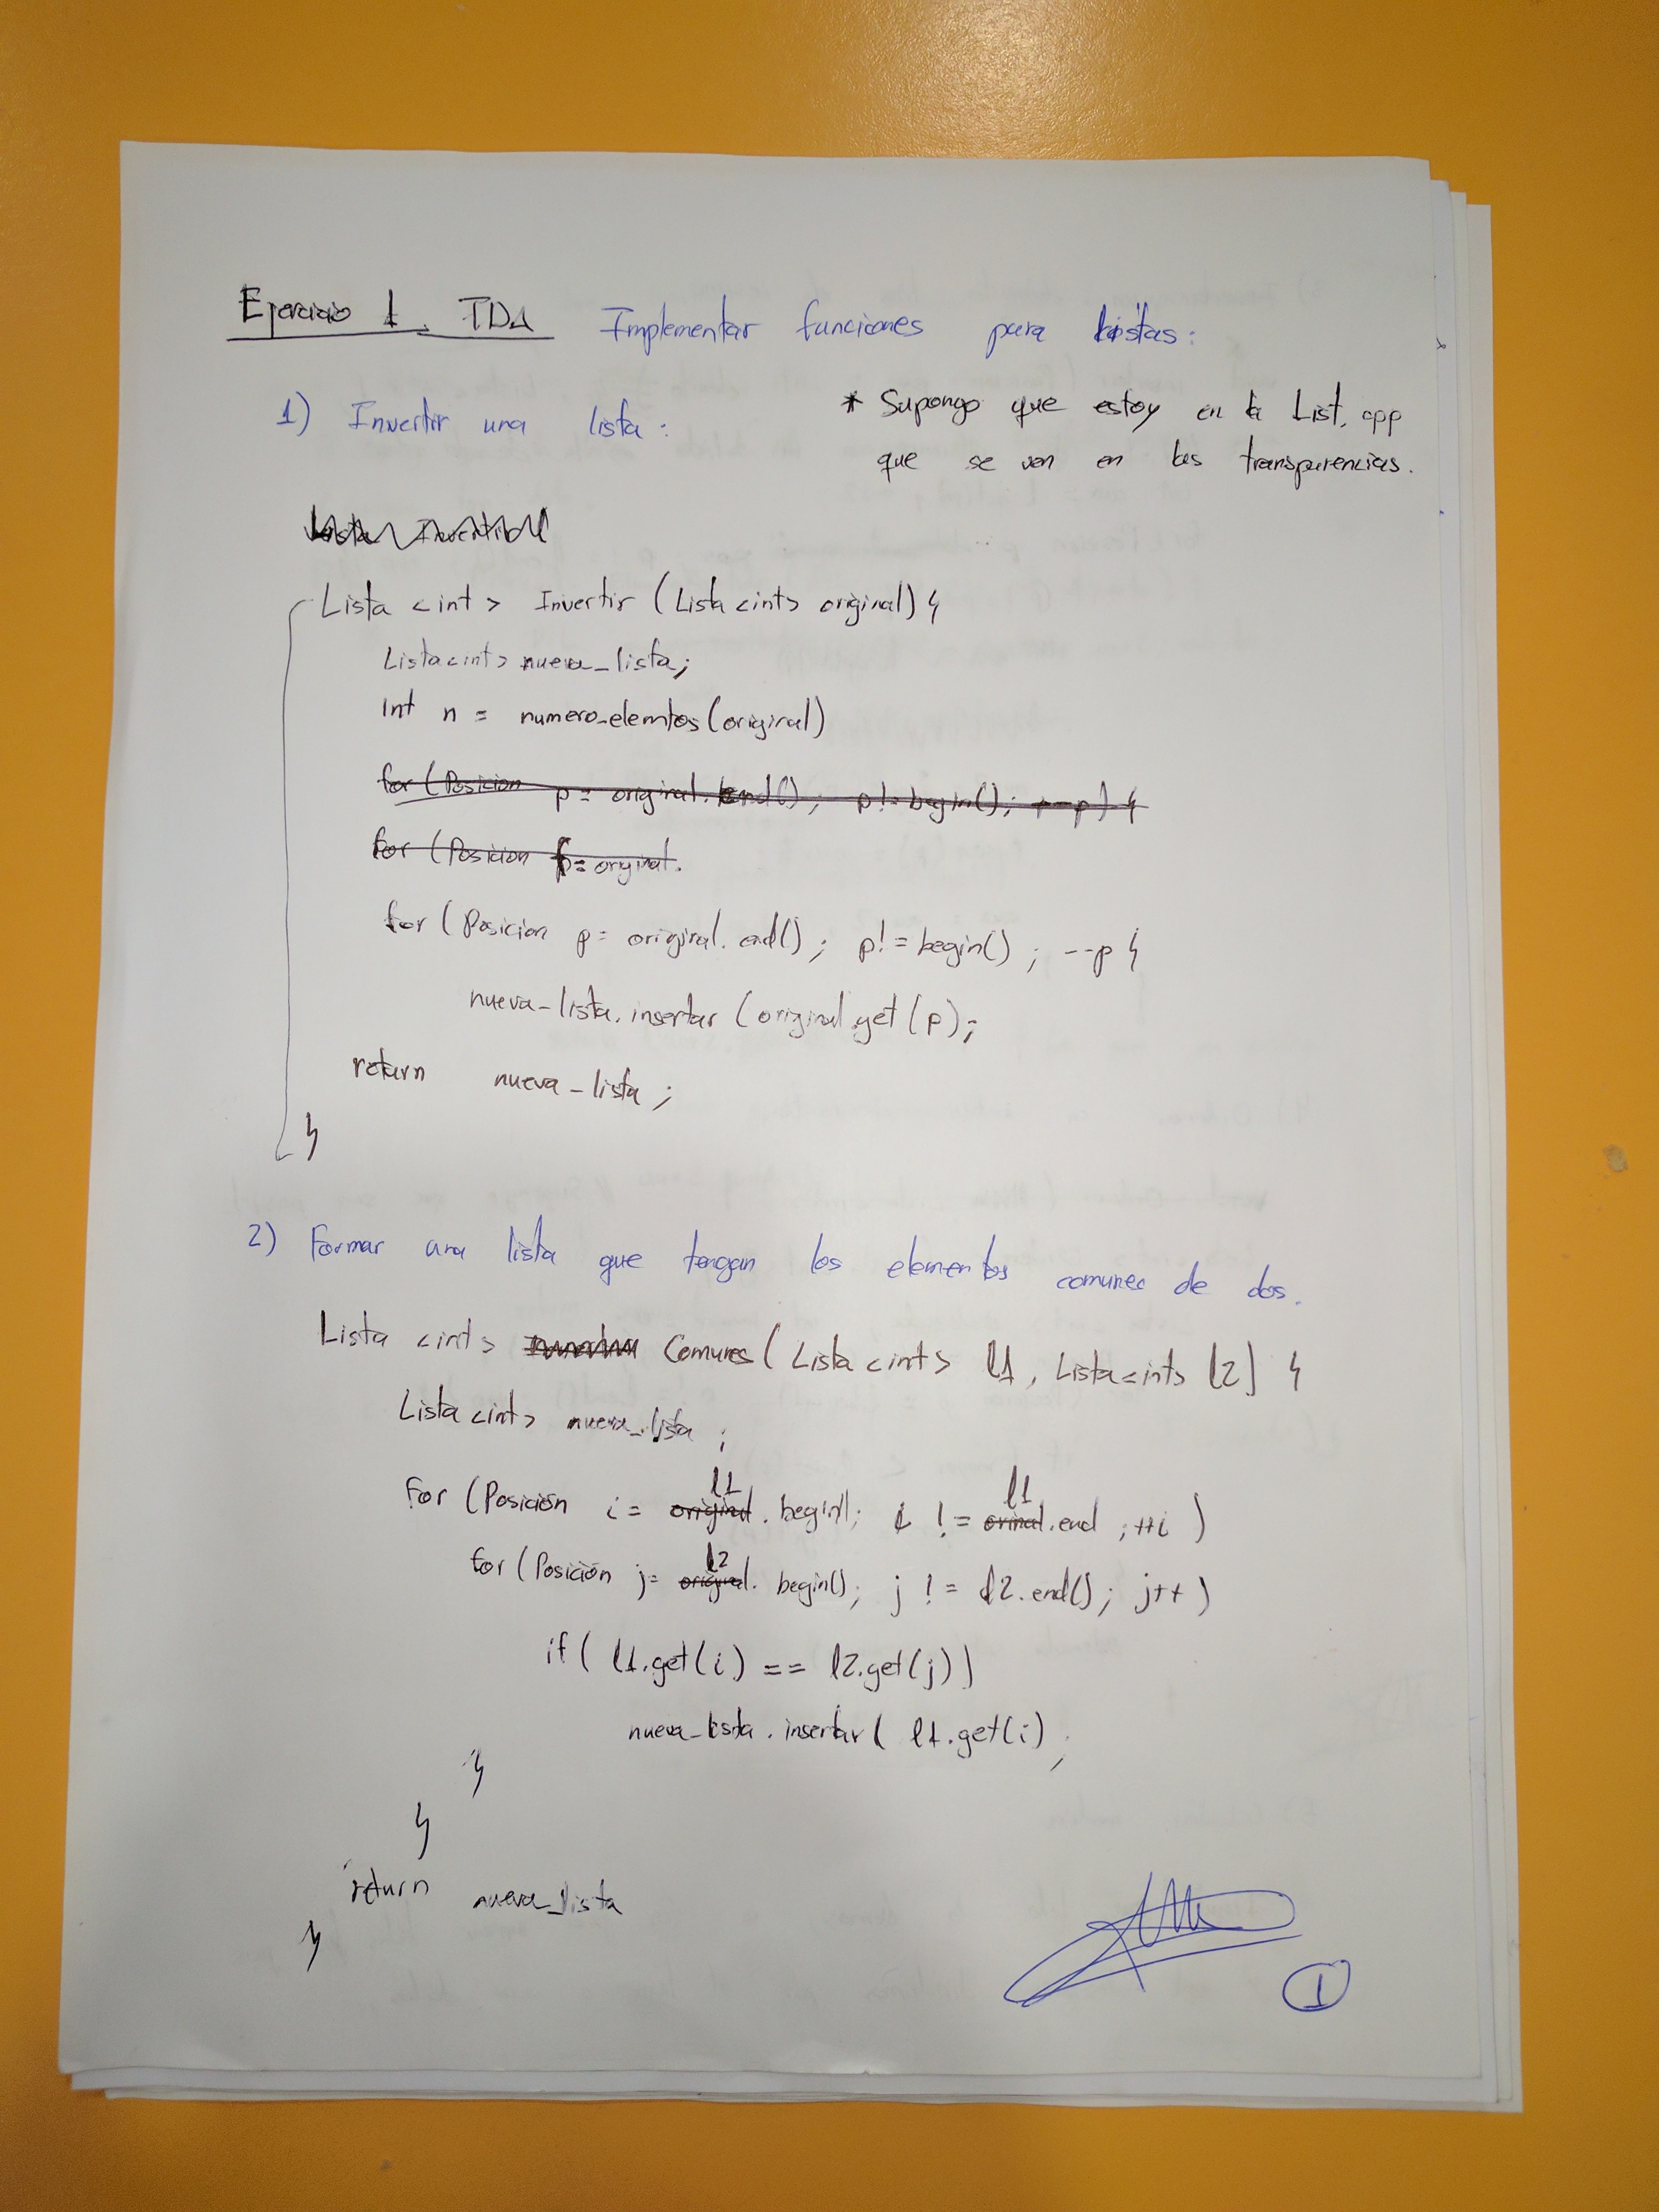 Ejercicio 1. TDA Implementar funciones para Listas:
1) Invertir una lista:
* Supongo que estoy en la List.cpp
que se ven en las transparencias.
Lista <int> Invertir (Lista<int> original) {
Lista<int> nueva_lista;
int n = numero_elemtos(original)
for (Posicion p = original.end(); p != begin(); --p) {
for (Posicion p = original.
for (Posicion p = original.end(); p != begin(); --p {
nueva_lista.insertar (original.get(p);
return nueva_lista;
}
2) Formar una lista que tengan los elementos comunes de dos.
Lista <int> Comunes (Lista <int> l1, Lista<int> l2) {
Lista <int> nueva_lista;
for (Posición i = original l1.begin(); i != orinal l1.end ; ++i )
for (Posición j = original l2.begin(); j != l2.end(); j++ )
if ( l1.get(i) == l2.get(j))
nueva_lista.insertar( l1.get(i) ;
}
}
return nueva_lista
}
1